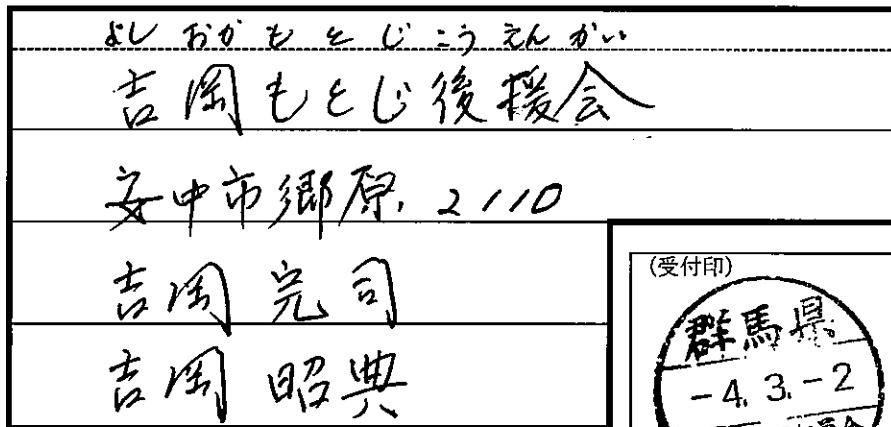 よしおかもとじこうえんかい
吉岡もとじ後援会
安中市郷原 2110
吉岡 完司
吉岡 昭典
(受付印)
群馬県
-4.3.-2